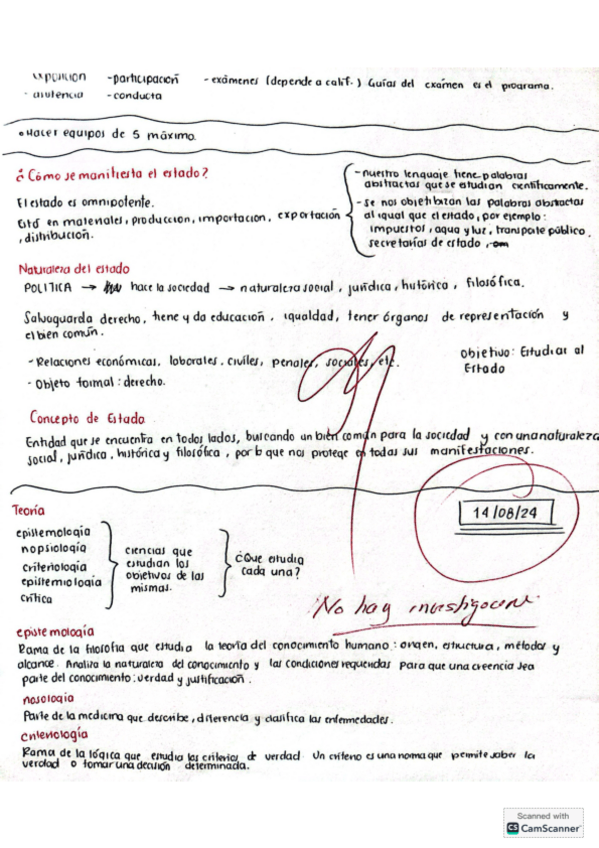 exposición -participación - exámenes (depende a calif.) Guías del exámen es el programa.
- asistencia - conducta
• Hacer equipos de 5 máximo.
¿Cómo se manifiesta el estado?
El estado es omnipotente.
Está en materiales, produccion, importación, exportación
, distribución.
- nuestro lenguaje tiene palabras
abstractas que se estudian científicamente.
- Se nos objetibizan las palabras abstractas
al igual que el estado, por ejemplo:
impuestos, agua y luz, transporte público,
secretarías de estado,
Naturaleza del estado
POLITICA → hace la sociedad → naturaleza social, jurídica, histórica, filosófica.
Salvaguarda derecho, tiene y da educación, igualdad, tener órganos de representación y
el bien común.
- Relaciones económicas, laborales, civiles, penales, sociales, etc.
- Objeto formal: derecho.
Objetivo: Estudiar al
Estado
Concepto de Estado
Entidad que se encuentra en todos lados, buscando un bien común para la sociedad y con una naturaleza
social, jurídica, histórica y filosófica, por lo que nos protege en todas sus manifestaciones.
14/08/24
Teoría
epistemología
nopsiología
criteriología
epistemiología
crítica
ciencias que
estudian los
objetivos de las
mismas.
¿Que estudia
cada una?
No hay
epistemología
Rama de la filosofia que estudia la teoría del conocimiento humano: origen, estructura, métodos y
alcance. Analiza la naturaleza del conocimiento y las condiciones requeridas para que una creencia sea
parte del conocimiento: verdad y justificación.
nosología
Parte de la medicina que describe, diferencia y clasifica las enfermedades.
criteriología
Rama de la lógica que estudia los criterios de verdad. Un criterio es una norma que permite saber la
verdad o tomar una decisión determinada.
Scanned with
CS CamScanner